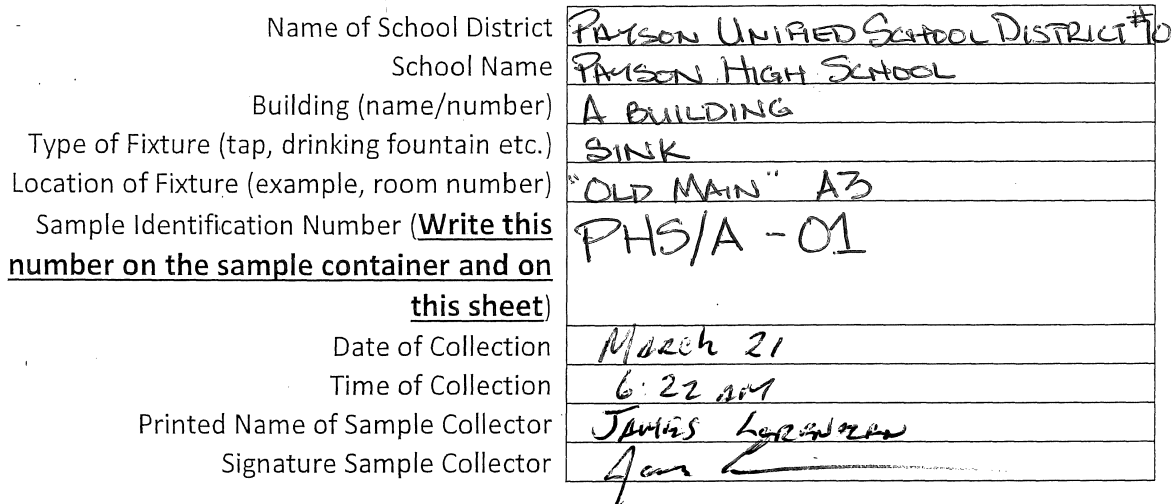 Name of School District PAYSON UNIFIED SCHOOL DISTRICT #10
School Name PAYSON HIGH SCHOOL
Building (name/number) A BUILDING
Type of Fixture (tap, drinking fountain etc.) SINK
Location of Fixture (example, room number) "OLD MAIN" A3
Sample Identification Number (Write this PHS/A - 01
number on the sample container and on
this sheet)
Date of Collection March 21
Time of Collection 6:22 AM
Printed Name of Sample Collector JAMES
Signature Sample Collector